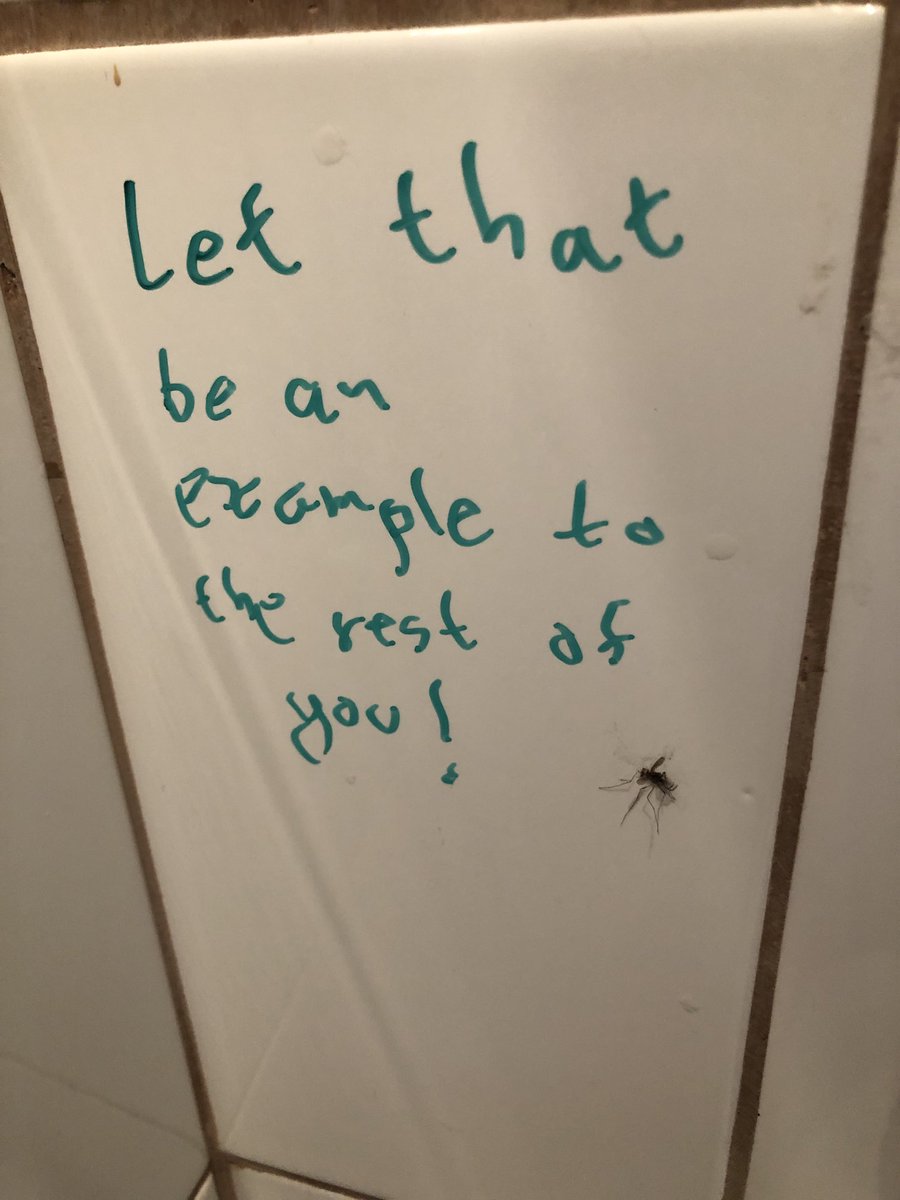 Let that
be an
example to
the rest of
you!